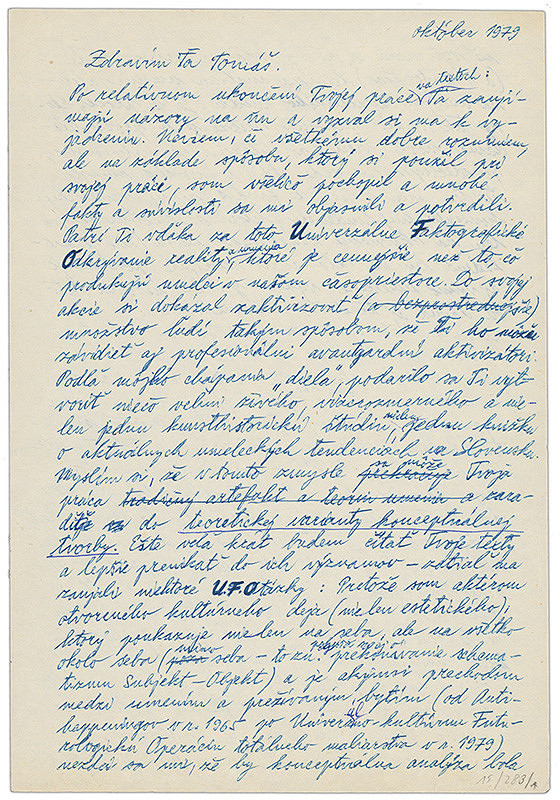 október 1979
Zdravím Ťa Tomáš.
Po relatívnom ukončení Tvojej práce na textoch: Ťa zaují-
majú názory na ňu a vyzval si ma k vy-
jadreniu. Neviem, či všetkému dobre rozumiem,
ale na základe spôsobu, ktorý si použil pri
svojej práci, som všeličo pochopil a mnohé
fakty a súvislosti sa mi objasnili a potvrdili.
Patrí Ti vďaka za toto Univerzálne Faktografické
Odkrývanie reality a umenia, ktoré je cennejšie než to čo
produkujú umelci v našom časopriestore. Do svojej
akcie si dokázal zaktivizovať (a bezprostrednejšie)
množstvo ľudí takým spôsobom, že Ti ho môžu
závidieť aj profesionálni avantgardní aktivizátori.
Podľa môjho chápania „diela“, podarilo sa Ti vyt-
voriť niečo veľmi živého, viacrozmerného a nie-
len jednu kunsthistorickú štúdiu, jednu knižku
o aktuálnych umeleckých tendenciách na Slovensku.
Myslím si, že v tomto zmysle prekračuje sa môže Tvoja
práca tradičný artefakt a teóriu umenia a zara-
diť do teoretickej varianty konceptuálnej
tvorby. Ešte veľa krát budem čítať Tvoje texty
a lepšie prenikať do ich významov – zatiaľ ma
zaujali niektoré U.F.Otázky: Pretože som aktérom
otvoreného kultúrneho deja (nielen estetického),
ktorý poukazuje nielen na seba, ale na všetko
okolo seba (mimo seba – to zn. prekonávanie schema-
tizmu Subjekt–Objekt) a je akýmsi prechodom
medzi umením a prežívaným bytím (od Anti-
happeningov v r. 1965 po Univerzálno-kultúrnu Futu-
rologickú Operáciu totálneho maliarstva v r. 1979)
nezdá sa mi, že by konceptuálna analýza bola
15/283/1